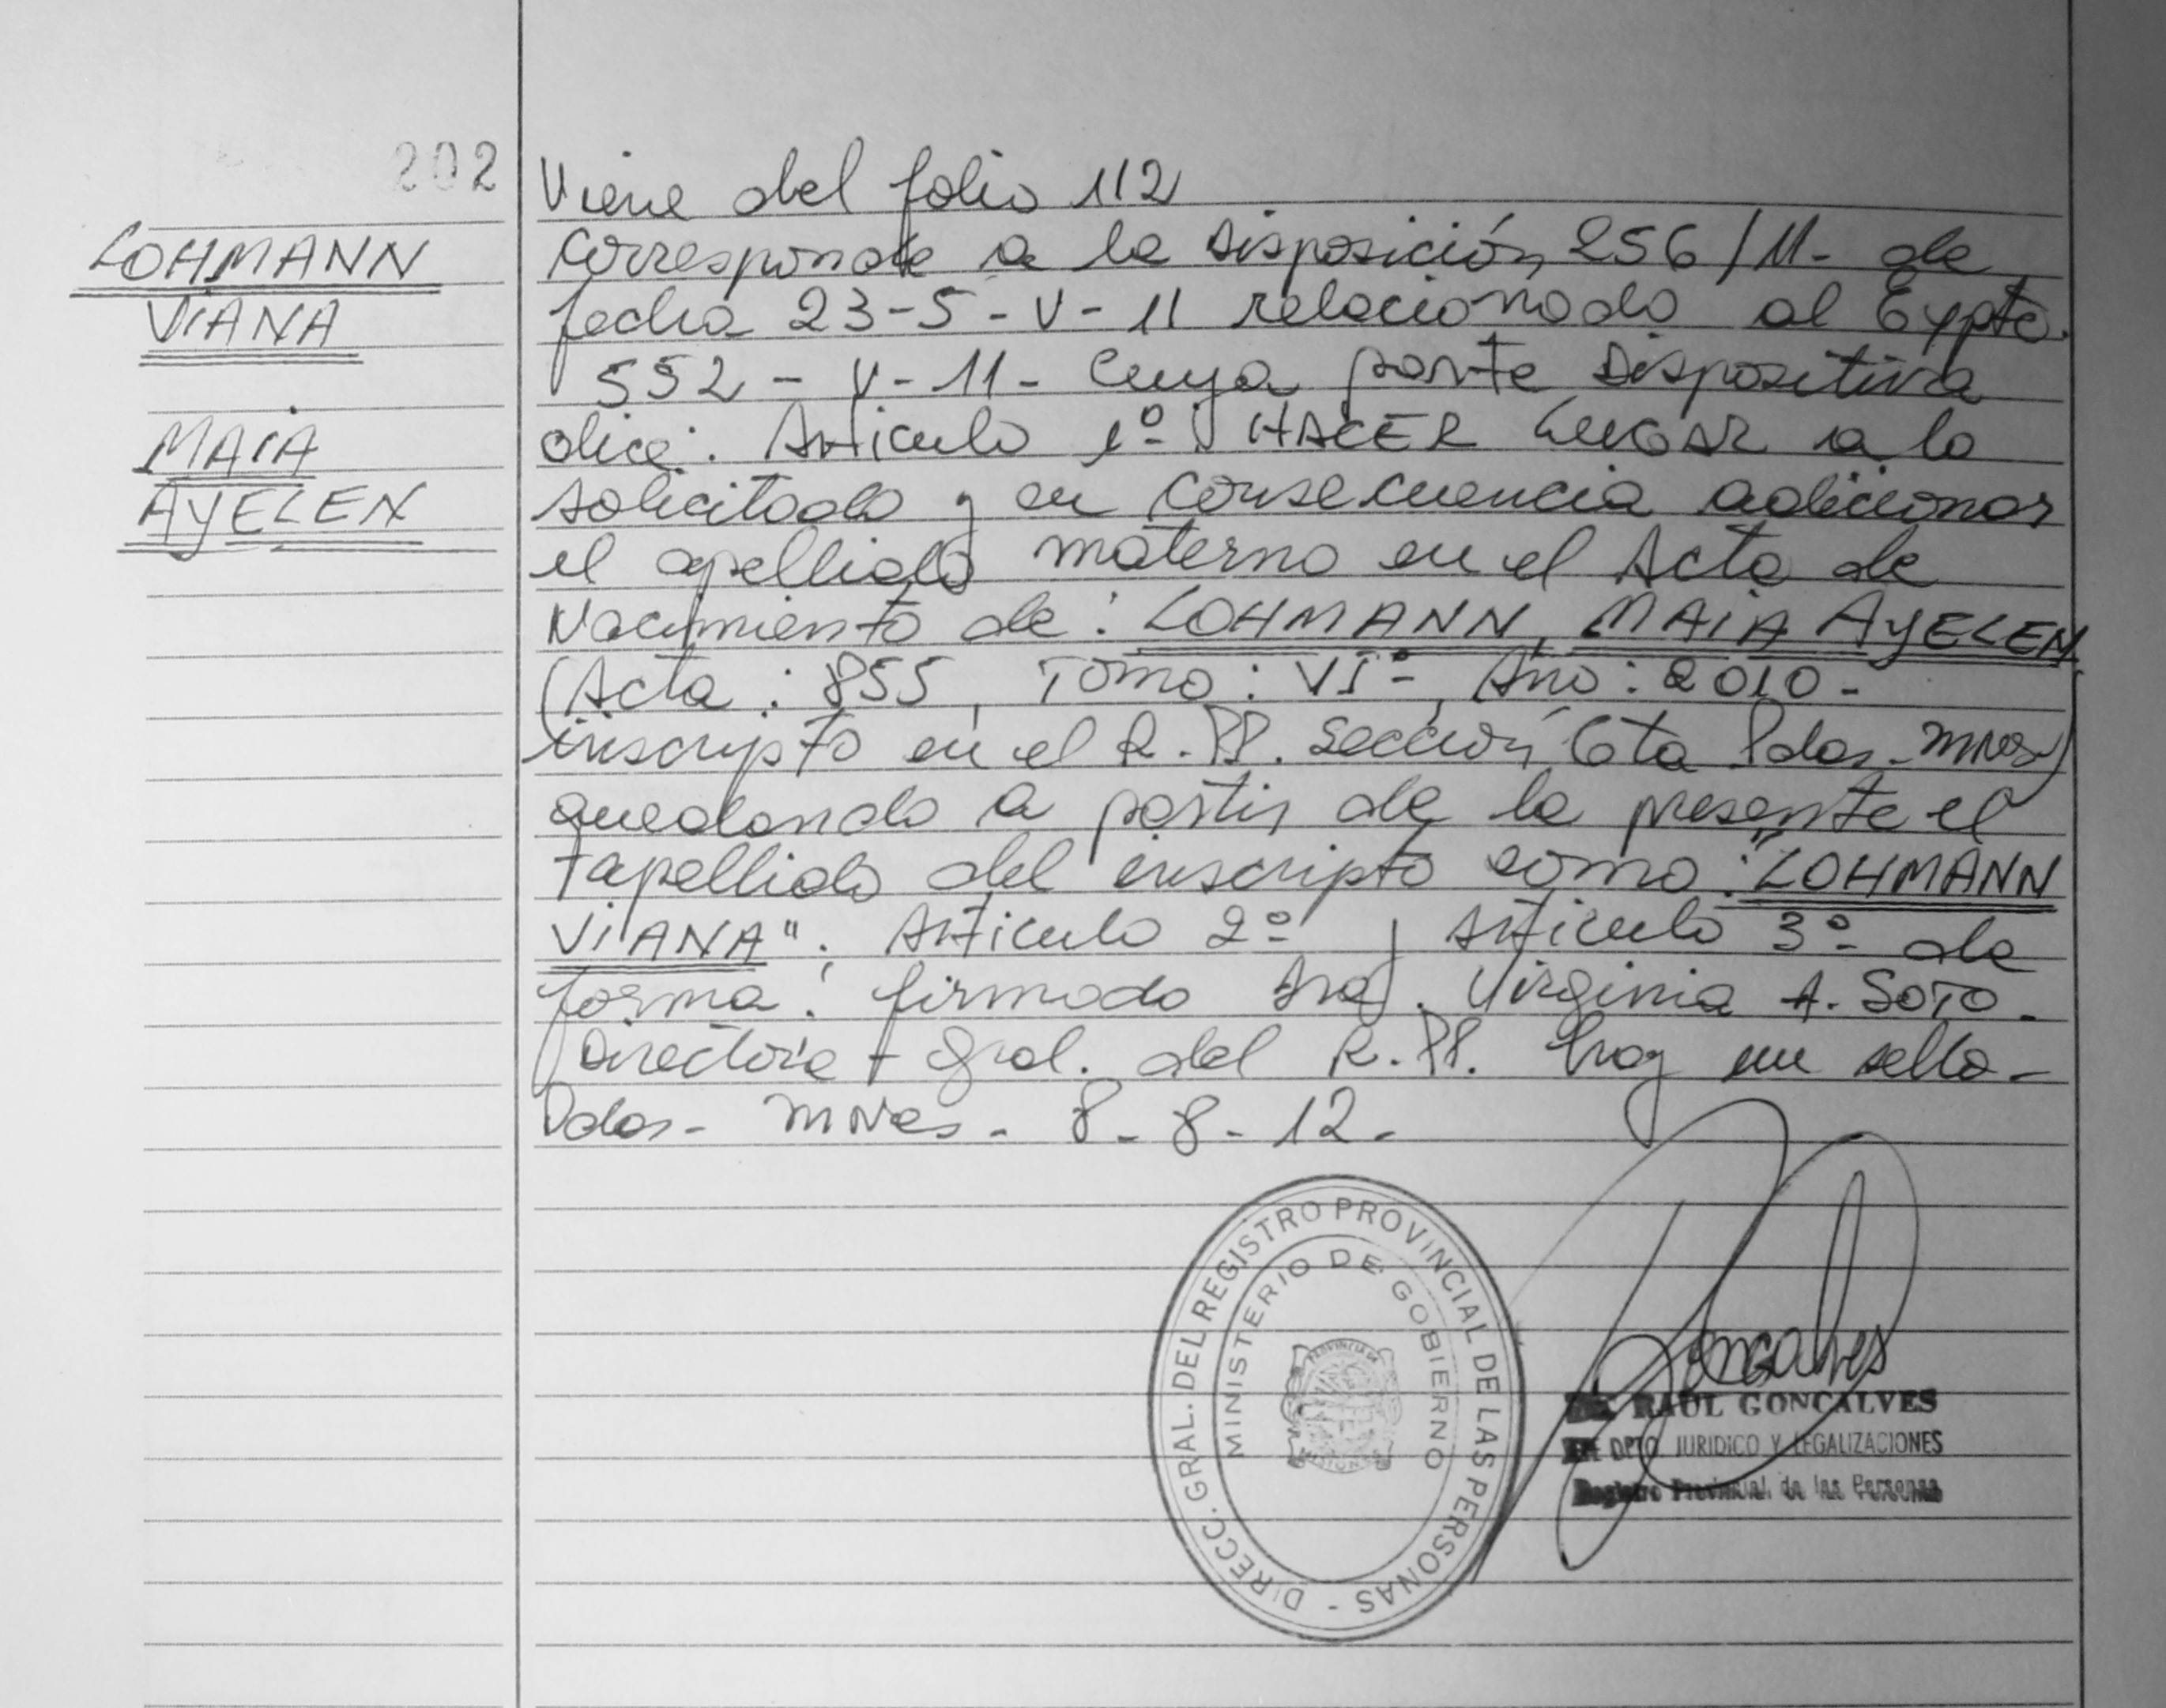 202
LOHMANN
VIANA
MAIA
AYELEN
Viene del folio 112
Corresponde a la Disposición 256/11- de
fecha 23-5-V-11 relacionado al Expte.
552-V-11- cuya parte Dispositiva
dice: Artículo 1º HACER LUGAR a lo
solicitado y en consecuencia adicionar
el apellido materno en el Acta de
Nacimiento de: LOHMANN, MAIA AYELEN
(Acta: 855, Tomo: VIº, Año: 2010-
inscripto en el R.PP. Sección 6ta Pdas-Mnes)
quedando a partir de la presente el
apellido del inscripto como: "LOHMANN
VIANA"; Artículo 2º, Artículo 3º de
forma: firmado Sra. Virginia A. SOTO-
Directora Gral. del R.PP. hay un sello-
Pdas- MNes- 8-8-12-
DIRECC. GRAL. DEL REGISTRO PROVINCIAL DE LAS PERSONAS -
MINISTERIO DE GOBIERNO
PROVINCIA DE
MISIONES
Goncalves
RAUL GONCALVES
DPTO JURIDICO Y LEGALIZACIONES
Registro Provincial de las Personas